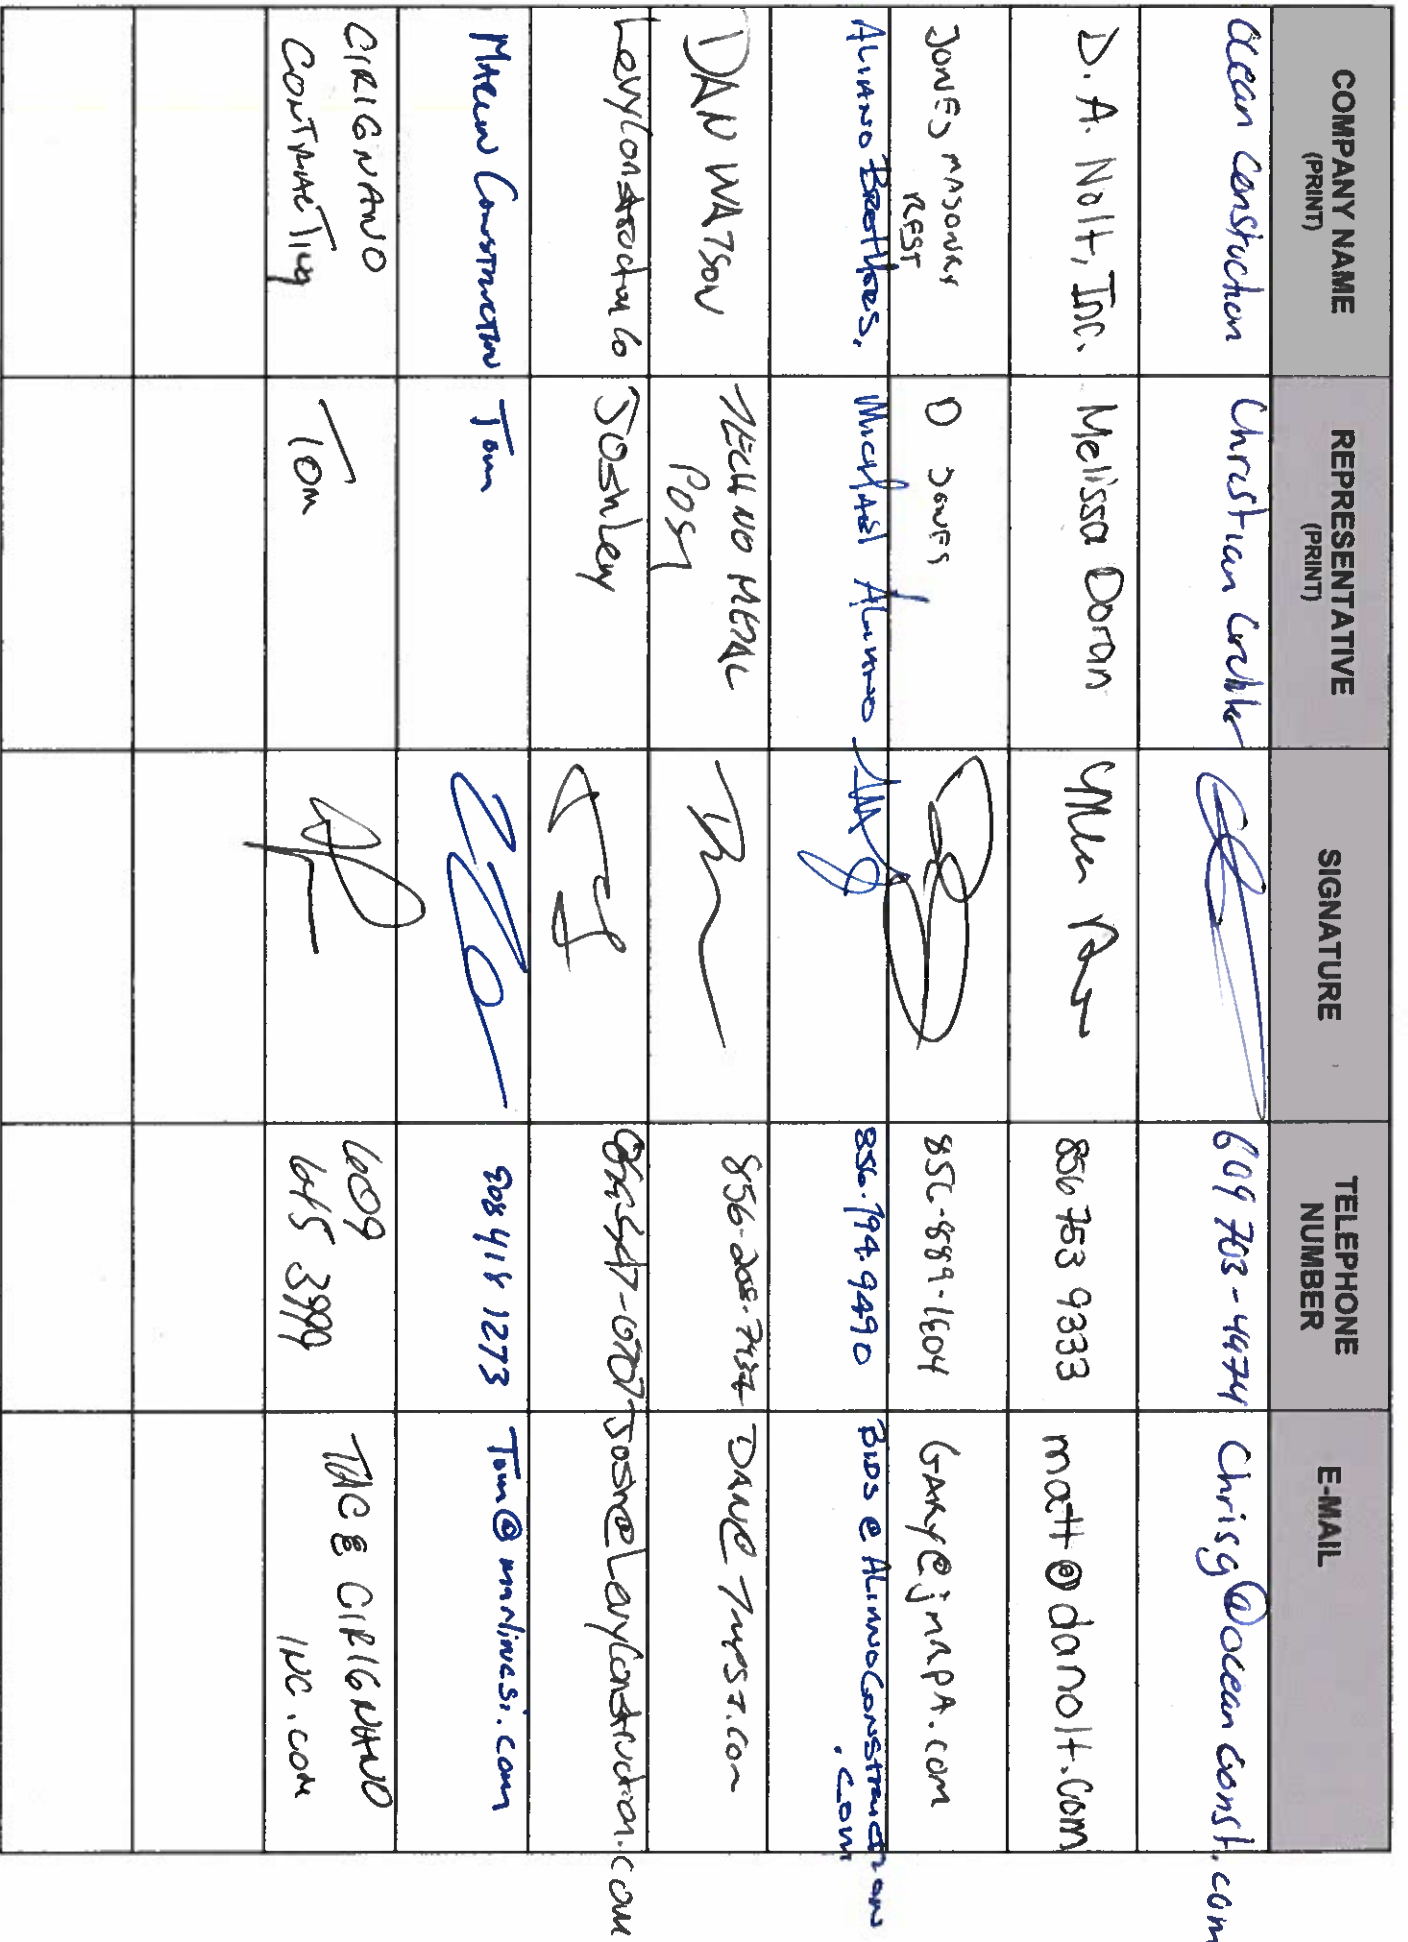 COMPANY NAME
(PRINT)
REPRESENTATIVE
(PRINT)
SIGNATURE
TELEPHONE
NUMBER
E-MAIL
Ocean Constuction
Christian
609 703-4974
Chrisg@oceanconst.com
D. A. Nolt, Inc.
Melissa Doran
856 753 9333
matt@danolt.com
JONES MASONRY
REST
D JONES
856-889-1604
GARY@jmRPA.com
ALIANO BROTHERS.
MICHAEL ALIANO
856.794.9490
BIDS@ALIANOCONSTRUCTION
.COM
DAN WATSON
TECHNO METAL
POST
856-208-7437
DAN@
Levy Construction Co
Josh Levy
Josh@LevyConstruction.com
CONSTRUCTION
Tom
908 418 1273
Tom@marlincsi.com
CIRIGNANO
CONTRACTING
Tom
609
645 3999
CIRIGNANO
INC.COM